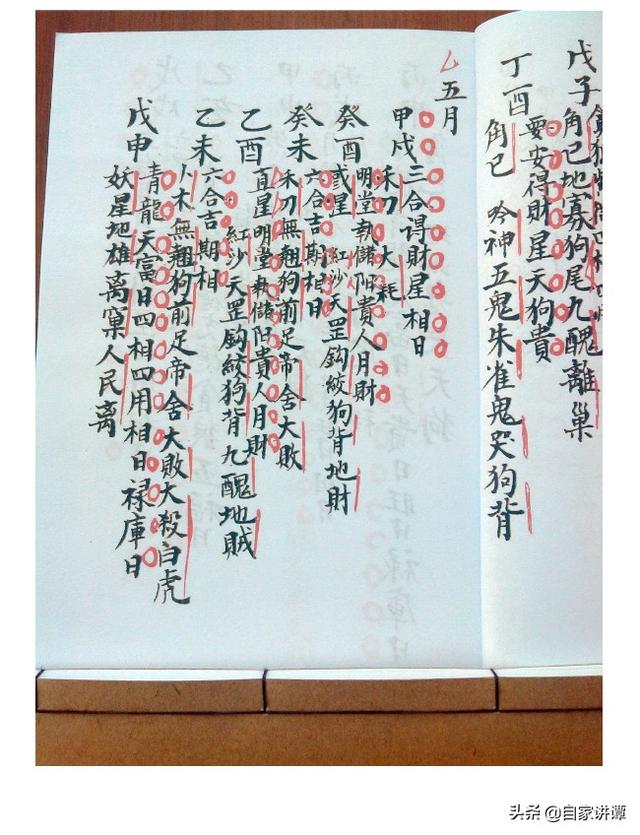 戊子
角巳地寡狗尾九醜離巢
要安得財星天狗貴
丁酉
角巳 吟神五鬼朱雀鬼哭狗背
五月
甲戌
三合得財星相日
禾刀 大耗
明堂執儲阳貴人月財
癸酉
貳星 紅沙天罡鈎絞狗背地財
六合吉期相日
癸未
禾刀無翘狗前足帝舍大敗
直星明堂執儲阳貴人月財
乙酉
紅沙天罡鈎絞狗背九醜地賊
六合吉期相
乙未
卜木無翘狗前足帝舍大敗大殺白虎
青龍天富日四相四用相日禄庫日
戊申
妖星地雄离窠人民离
头条 @自家讲谭